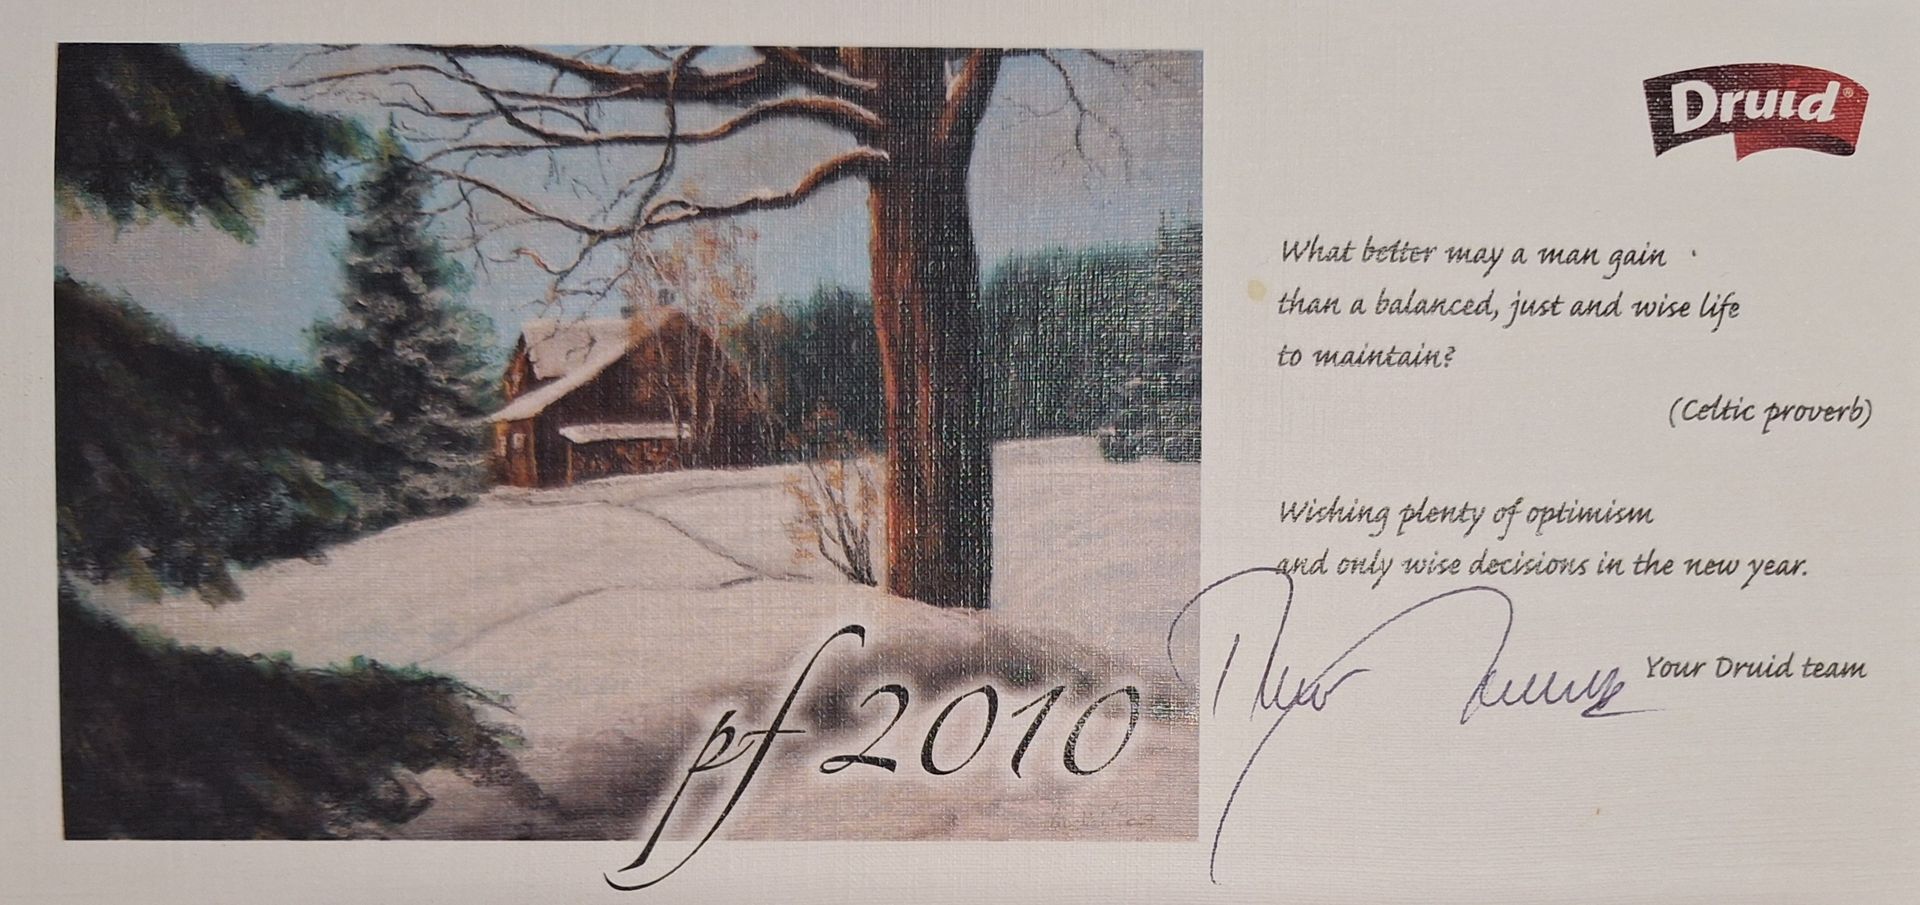 Druid®
What better may a man gain
than a balanced, just and wise life
to maintain?
(Celtic proverb)
Wishing plenty of optimism
and only wise decisions in the new year.
Your Druid team
pf 2010